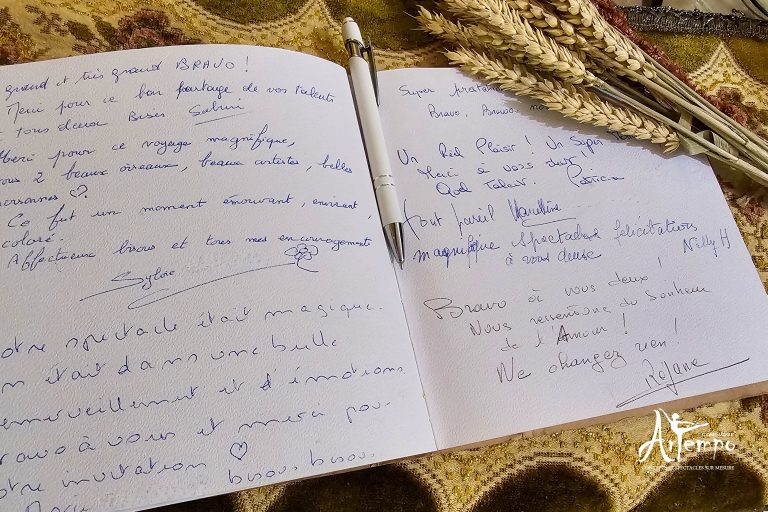 grand et très grand BRAVO !
Merci pour ce bon partage de vos talents
tous deux Bises Sabine
pour ce voyage magnifique,
vous 2 beaux oiseaux, beaux artistes, belles
personnes ♡.
Ce fut un moment émouvant, enivrant,
coloré.
Affectueux bisous et tous mes encouragements
Sylvie
otre spectacle était magique.
n était dans une bulle
emerveillement et d'émotions
ravo à vous et merci pour
otre invitation ♡
bisous bisous.
Super
Bravo, Bravo,
Un Réel Plaisir ! Un Super
Merci à vous deux !
Quel Talent. Patricia
Tout pareil
magnifique spectacle félicitations
à vous deux Nelly H
Bravo à vous deux !
Nous ressentons du bonheur
de l'Amour !
Ne changez rien !
Rejane
Artempo
SPECTACLES SUR MESURE